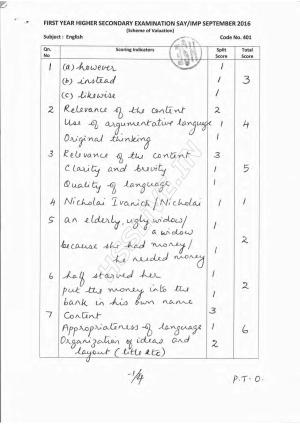 FIRST YEAR HIGHER SECONDARY EXAMINATION SAY/IMP SEPTEMBER 2016
(Scheme of Valuation)
Subject : English Code No. 401
Qn. No Scoring Indicators Split Score Total Score
1 (a) however 1
(b) instead 1 3
(c) likewise 1
2 Relevance of the content 2
Use of argumentative language 1 4
Original thinking 1
3 Relevance of the content 3
Clarity and brevity 1 5
Quality of language 1
4 Nicholai Ivanich / Nicholai 1 1
5 an elderly, ugly widow/
a widow 1
because she had money/ 2
he needed money 1
6 half starved her 1
put the money into the 2
bank in his own name 1
7 Content 3
Appropriateness of language 1 6
Organization of ideas and
layout (title etc) 2
P.T.O.
HSSLIVE.IN